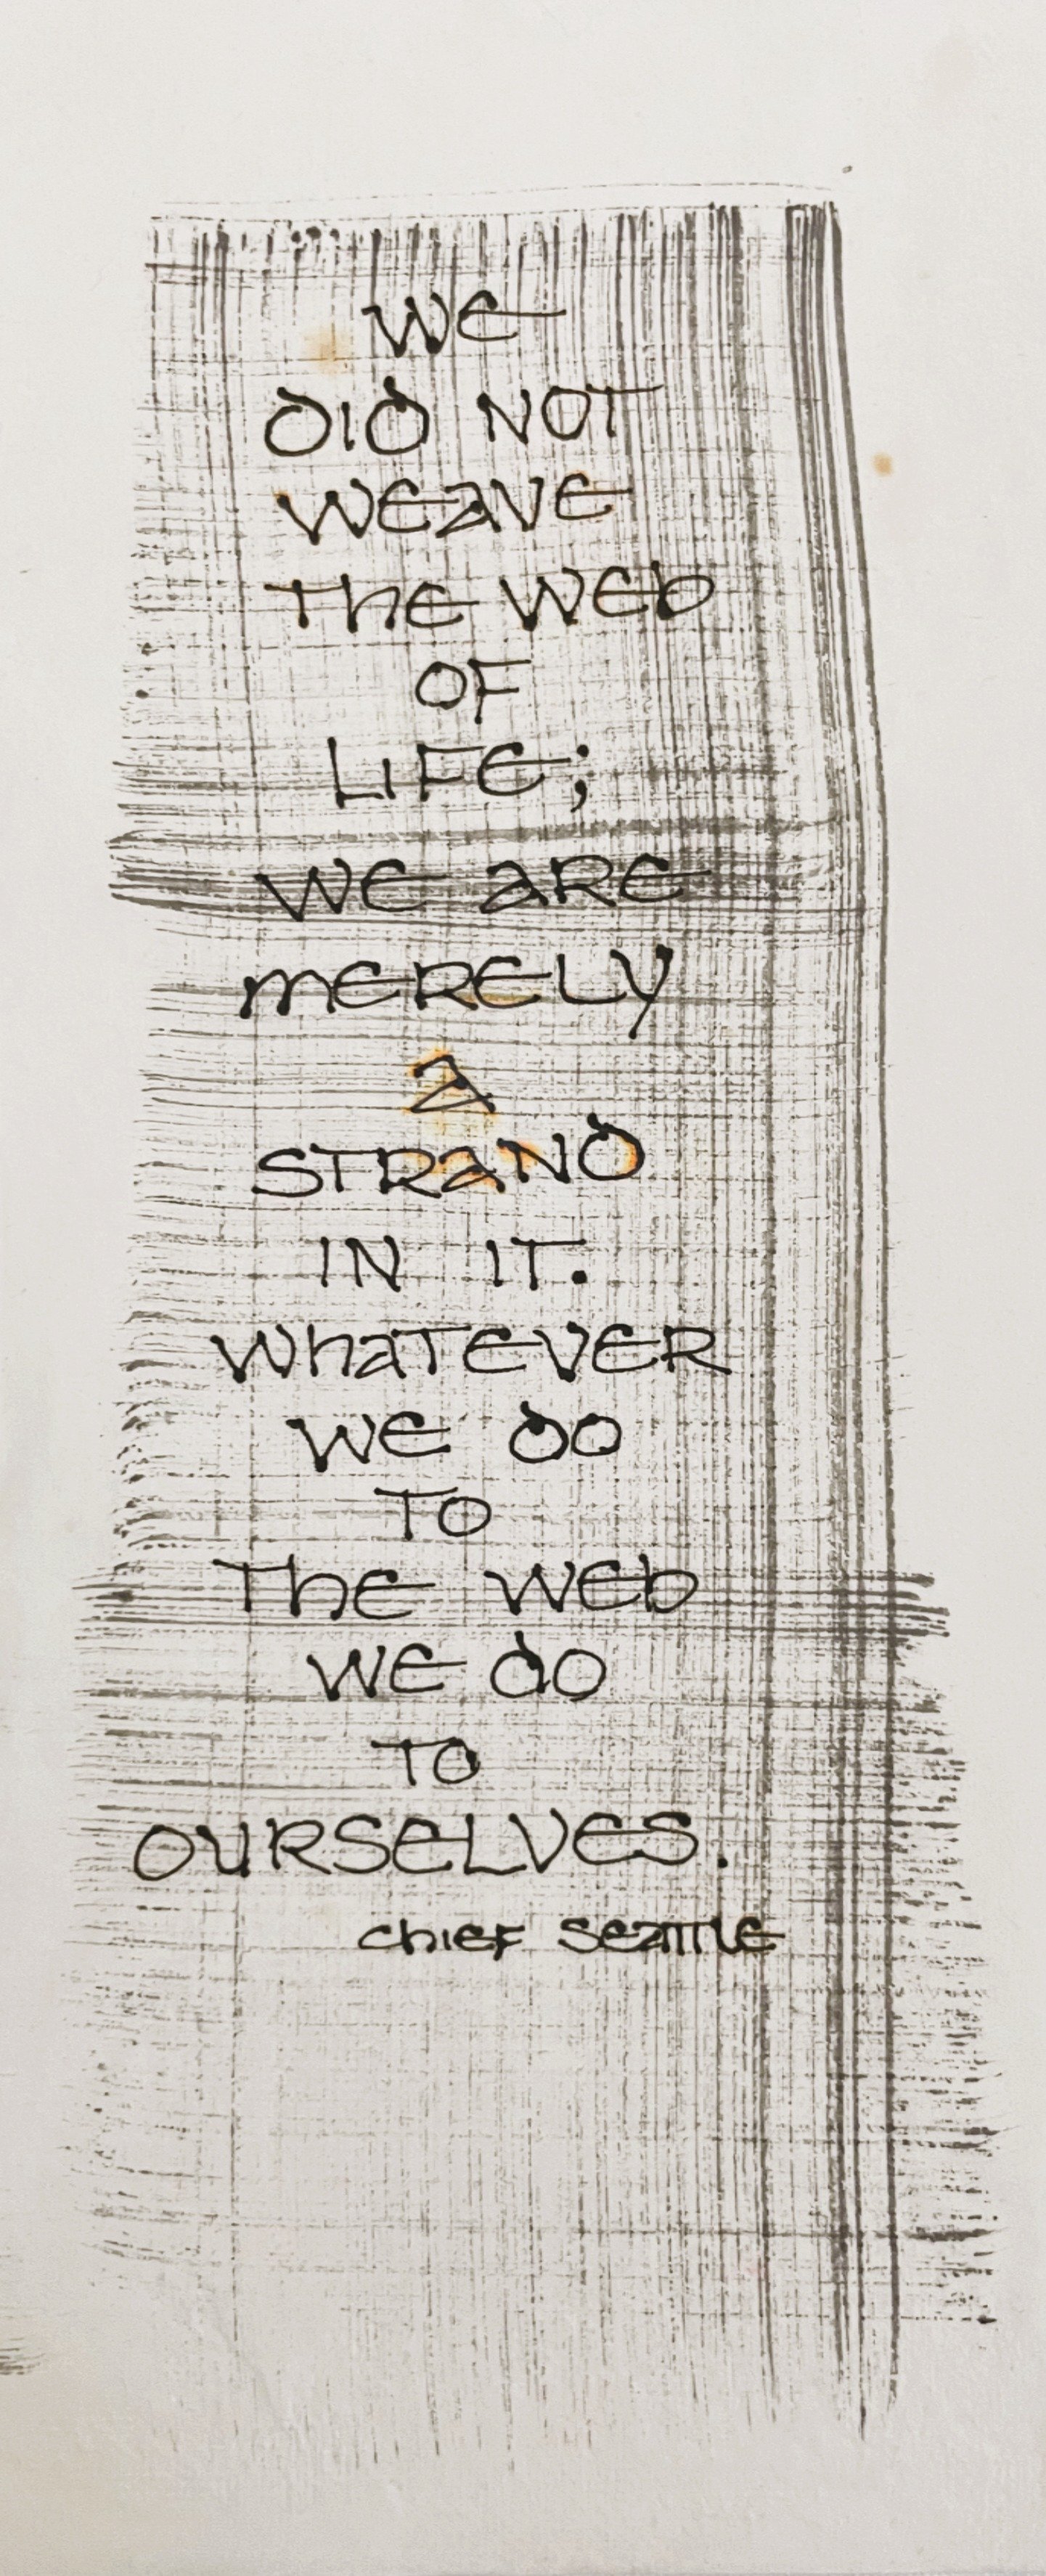 We
DID NOT
Weave
The Web
OF
LIFE;
We are
merely
a
STRAND
IN IT.
Whatever
We do
TO
The Web
We do
TO
OURSELVES.
Chief Seattle